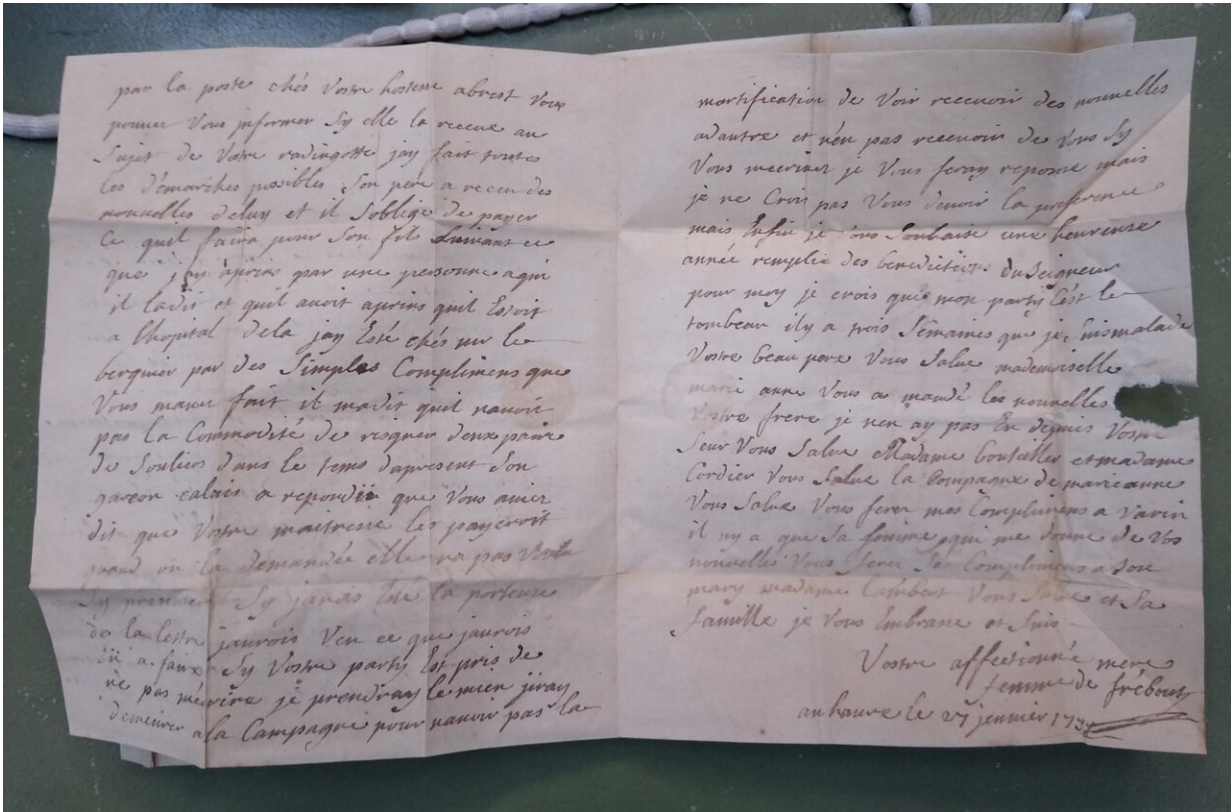 par la poste chés Vostre hostesse abrest Vous
pouvez Vous jnformer Sy elle la receue au
Sujet de Votre radingotte jay fait toutes
les démarches possibles Son pere a receu des
nouvelles deluy et il Soblige de payer
Ce quil faira pour Son fils Suivant ce
que jay apris par une personne aqui
il ladit et quil avoit apris quil Estoit
a lhopital dela jay Esté chés mr le
berquier par des Simples Complimens que
Vous mavez fait il madit quil navoit
pas la Commodité de risquer deux paire
de Souliers dans le tems dapresent Son
garcon calais a repondü que Vous aviez
dit que Vostre maitresse les payeroit
quand on la demandée elle na pas Voulu
Sy presenter Sy javois Esté la porteuse
de la lettre jaurois Veu ce que jaurois
a faire Sy Vostre party Est pris de
ne pas mécrire je prendray le mien jiray
demeurer ala Campagne pour navoir pas la
mortification de Voir recevoir des nouvelles
adautre et nén pas recevoir de Vous Sy
Vous mecrivez je Vous feray reponse mais
je ne Crois pas Vous devoir la preference
mais Enfin je Vous Souhaise une heureuse
année remplie des benedictions du Seigneur
pour moy je crois que mon party Cest le
tombeau ily a trois Semaines que je suis malade
Vostre beau pere Vous Salue mademoiselle
marie anne Vous a mandé les nouvelles
Vostre frere je nen ay pas Eu depuis Vostre
Seur Vous Salue Madame bouteiller et madame
Cordier Vous Salue la Compagne de marieanne
Vous Salue Vous ferez mes Complimens a Varin
il ny a que Sa femme qui me donne de Vos
nouvelles Vous ferez Ses Complimens a Son
mary madame Lambert Vous Salue et Sa
famille je Vous Embrasse et Suis
Vostre affectionné mere
femme de frébourg
auhavre le 27 jenvier